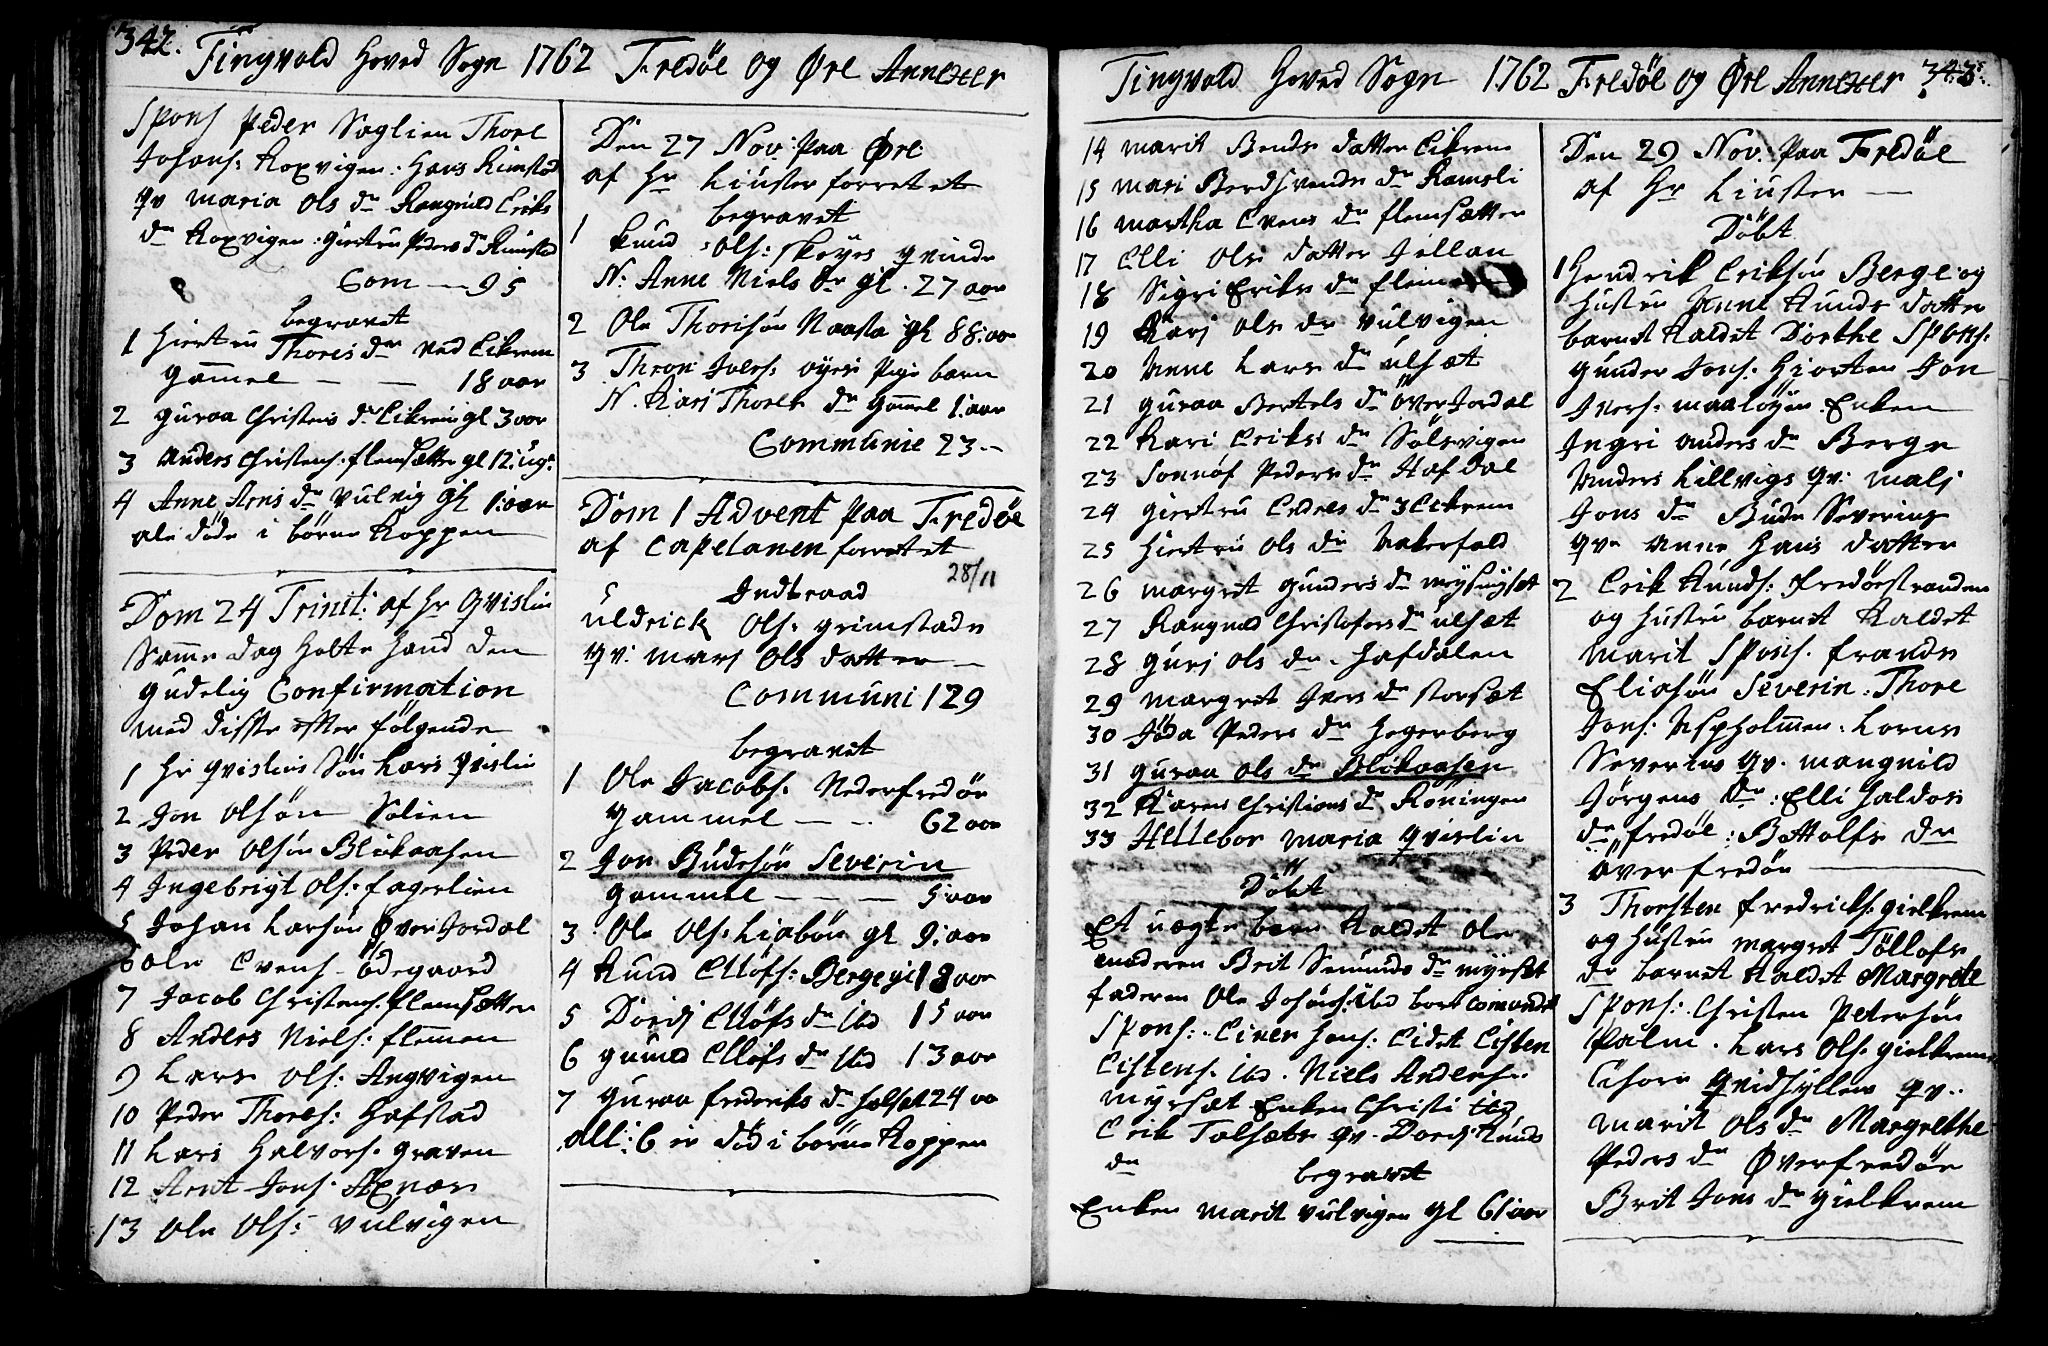 342. Tingvold Hoved Sogn 1762 Fredöe og Øre Annexer
Spons Peder Saglien Thore
Johans: Roxvigen: Hans Rimstad
qv Maria Ols dr Rangnild Eriks
dr Roxvigen: Giertru Peders dr Rimstad
Com — 95
begravet
1 Hiertru Thores dr ved Eikrem
gammel — — 18 aar
2 Guraa Christens dr Eikrem gl 3 aar
3 Anders Christens: flemsætter gl 12: ug:
4 Anne Arns dr Vulvig gl 1: aar
ale døde i børne Koppen
Dom 24 Trinit: af Hr Qvislin
Samme dag holte hand den
gudelig Confirmation
med disse efter følgende
1 Hr Qvislins Søn Lars Qvislin
2 Jon Olsön Solien
3 Peder Olsön Blikaasen
4 Ingebrigt Ols: fagerlien
5 Johan Larsön Øver Jordal
6 Ole Evens. Ödegaard
7 Jacob Christens: flemsætter
8 Anders Niels: flemmen
9 Lars Ols: Angvigen
10 Peder Thores: Hafstad
11 Lars Halvors: Graven
12 Arnt Jons: Axnæs
13 Ole Ols: Vulvigen
Den 27 Nov: paa Øre
af Hr Liuster forrettet
begravet
1 Knud Ols: Skeyes qvinde
N: Anne Niels dr gl. 27 aar
2 Ole Thorisön Naasta gl 88: aar
3 Thron Ivers: Øyes Pige barn
N. Kari Thores dr gamel 1: aar
Communie 23 —
Dom 1 Advent paa Fredöe
af Capelanen forrettet
28/11
Indtraad
Uldrick Ols: Grimstads
qv: Marj Ols datter —
Communi 129
begravet
1 Ole Jacobs: Nederfredöe
gammel — — 62 aar
2 Jon Budesön Severin
gammel — — — 5 aar
3 Ole Ols: Liabön gl 9: aar
4 Knud Ellöfs: Berge gl 18 aar
5 Dordj Ellöfs dr ibd 15 aar
6 Gunild Ellöfs dr ibd 13 aar
7 Guraa frederiks dr 24 aa
all: 6 er död i börne Koppen
Tingvold Hoved Sogn 1762 Fredöe og Øre Annexer 343.
14 Marit Bends datter Eikrem
15 Mari Berdsvends dr Ramsli
16 Martha Evens dr flemsætter
17 Elli Ols datter
18 Sigri Eriks dr
19 Karj Ols dr Vulvigen
20 Anne Lars dr Ulsæt
21 Guraa Bertels dr Över Jordal
22 Kari Eriks dr Sölsvigen
23 Sonnöf Peders dr Hafdal
24 Giertru dr Eikrem
25 Hiertru Ols dr
26 Margret Gunders dr
27 Rangnild Christofers dr Ulsæt
28 Gurj Ols dr. Hafdalen
29 Margret Ivers dr Storsæt
30 Peders dr Hegerberg
31 Guraa Ols dr Blikaasen
32 Karen Christians dr Röningen
33 Hellebor Maria Qvislin
Döbt
Et uægte barn Kaldet Ole
moderen Brit Semunds dr Myrset
faderen Ole Johans: ibd
Spons: Einer Jons: Eidet Eisten
Eistens. ibd. Niels Anders:
Myrsæt Enken Christi ibd
Erik Talsæts qv. Dordj Knuds
dr
begravet
Enken Marit Vulvigen gl 61 aar
Den 29 Nov: paa Fredöe
af Hr Liuster —
Döbt
1 Hendrik Eriksön Berge og
Hustru Anne Knuds datter
barnet Kaldet Dorthe Spons:
Gunder Jons: Hiorten Jon
Ivers: Maalöyen. Enken
Ingri Anders dr Berge
Anders Lillvigs qv: Malj
Jons dr Bude Severins
qv Anne Hans datter
2 Erik Knuds: Fredöestranden
og Hustru barnet Kaldet
Marit Spons. frands
Eliasön Severin. Thore
Jons: Aspholmen. Lorns
Severins qv. Mangnild
Jörgens dr: Elli Haldos
dr fredöe: Bottolfs dr
överfredöe —
3 Thorsten fredricks: gielkrem
og Hustru Margret Tölløfs
dr barnet Kaldet Margrete
Spons: Christen Petersön
Palm. Lars Ols. gielkrem
qv.
Marit Ols dr Margrethe
Peders dr Øverfredöe
Brit Jons dr gielkrem